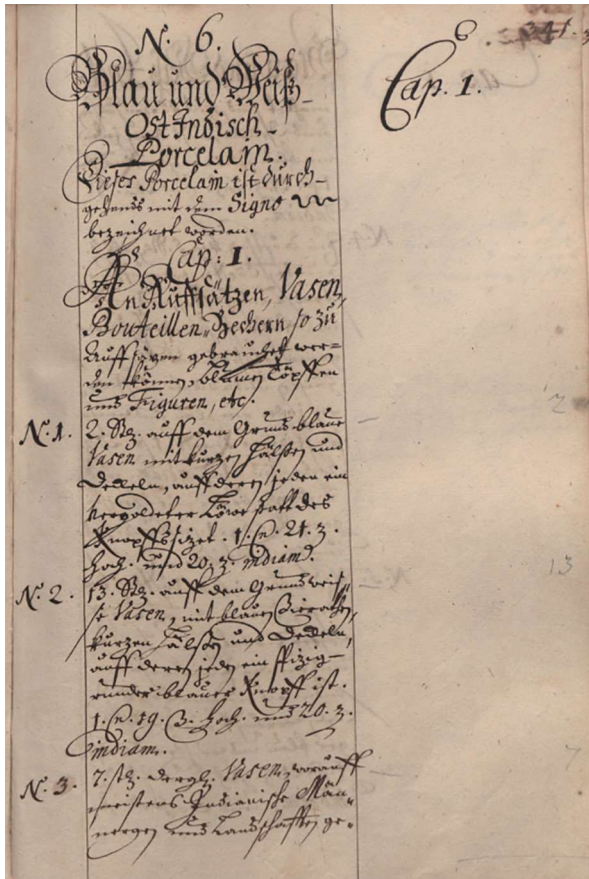 341.
N. 6.
Cap. 1.
Blau und Weiß-
Ost Indisch-
Porcelain.
Dieses Porcelain ist durch-
gehends mit dem Signo
bezeichnet worden.
Cap: 1.
An Auffsätzen, Vasen,
Bouteillen, Bechern so zu
Auffsäzen gebrauchet wer=
den können, blumen Töpffen
und Figuren, etc.
N. 1. 2. Stz. auff dem Grund blaue
Vasen mit kurzen Hälßen und
Deckeln, auff deren jeden ein
vergoldeter Löwe statt des
Knopffs sizet. 1. En. 21. z.
hoch. und 20. z. in diam.
N. 2. 13. Stz. auff dem Grund weis-
se Vasen, mit blauen Zierathen,
kurzen Hälßen und Deckeln,
auff deren jeden ein spizig-
runder blauer Knopff ist.
1. En. 19. z. hoch. und 20. z.
in diam.
N. 3. 7. stz. dergl. Vasen, worauff
meistens Indianische Män-
nergen und Landschafften ge-
2
13
7